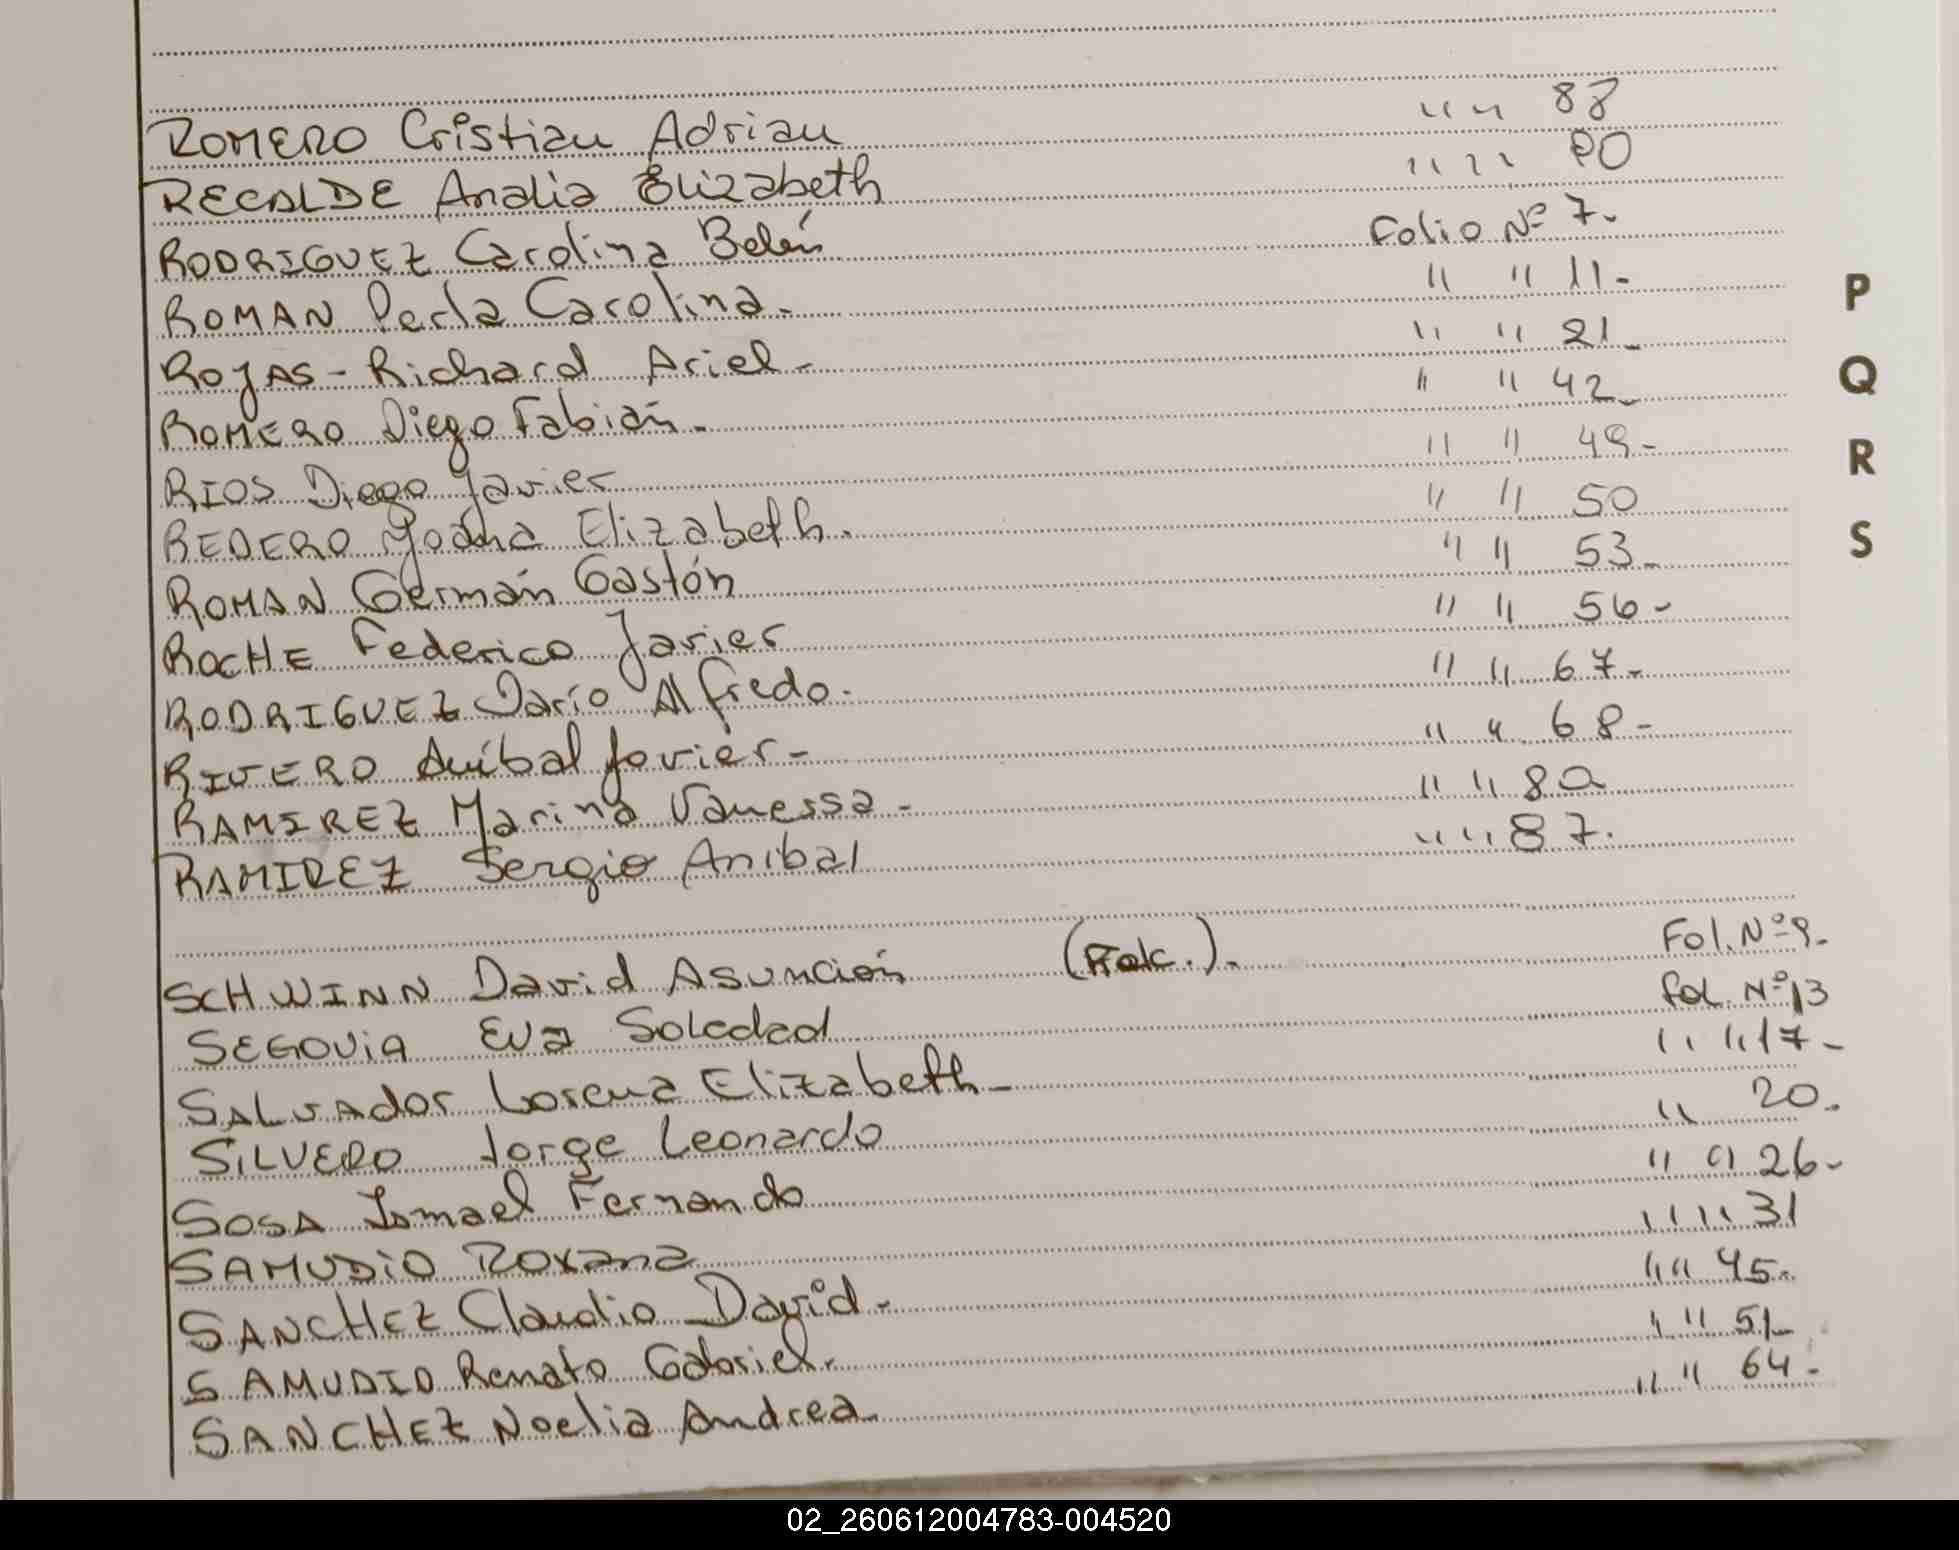 ROMERO Cristian Adrian " " 88
RECALDE Analia Elizabeth " " 90
RODRIGUEZ Carolina Belén Folio Nº 7.
ROMAN Perla Carolina. " " 11.
ROJAS - Richard Ariel - " " 21_
ROMERO Diego Fabián. " " 42_
RIOS Diego Javier " " 49-
REDERO Yoana Elizabeth. " " 50
ROMAN Germán Gastón " " 53_
ROCHE Federico Javier " " 56-
RODRIGUEZ Darío Alfredo. " " 67-
RIVERO Anibal Javier - " " 68-
RAMIREZ Marina Vanessa - " " 80
RAMIREZ Sergio Anibal " " 87.
SCHWINN David Asunción Fol. Nº 9.
SEGOVIA Eva Soledad Fol. Nº 13
SALVADOR Lorena Elizabeth - " " 17-
SILVERO Jorge Leonardo " 20.
SOSA Ismael Fernando " " 26-
SAMUDIO Roxana " " 31
SANCHEZ Claudio David - " " 45-
SAMUDIO Renato Gabriel. " " 51_
SANCHEZ Noelia Andrea " " 64-
P
Q
R
S
02_260612004783-004520